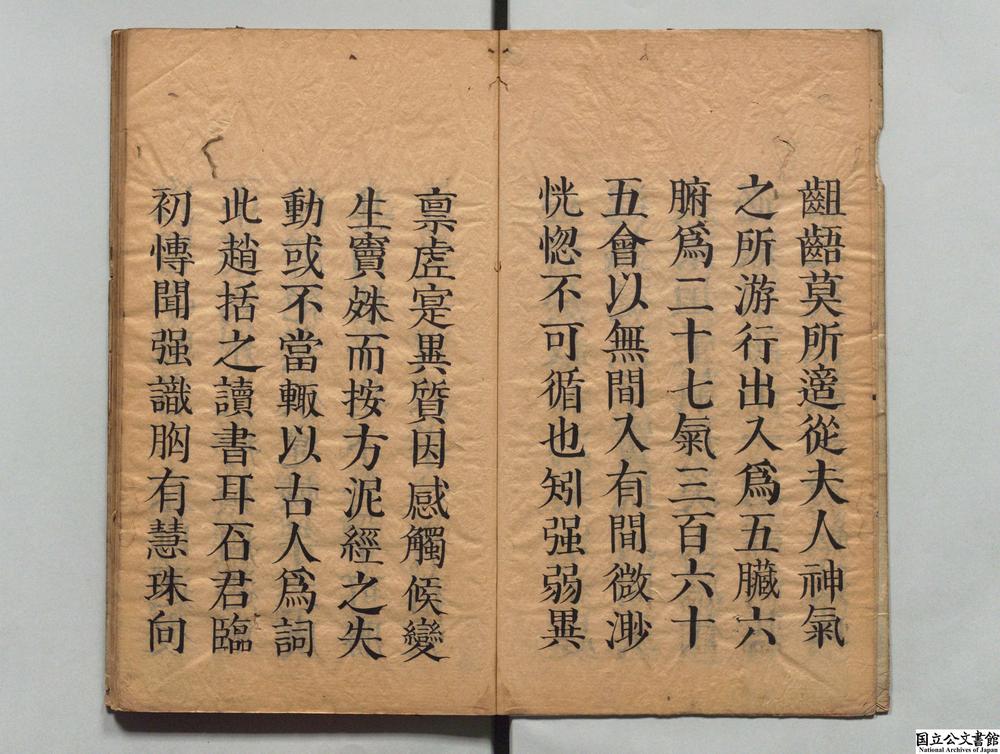 齟齬莫所適從夫人神氣
之所游行出入爲五臟六
腑爲二十七氣三百六十
五會以無間入有間微渺
恍惚不可循也矧强弱異
禀虛寔異質因感觸候變
生竇殊而按方泥經之失
動或不當輒以古人爲詞
此趙括之讀書耳石君臨
初慱聞强識胸有慧珠向
国立公文書館
National Archives of Japan